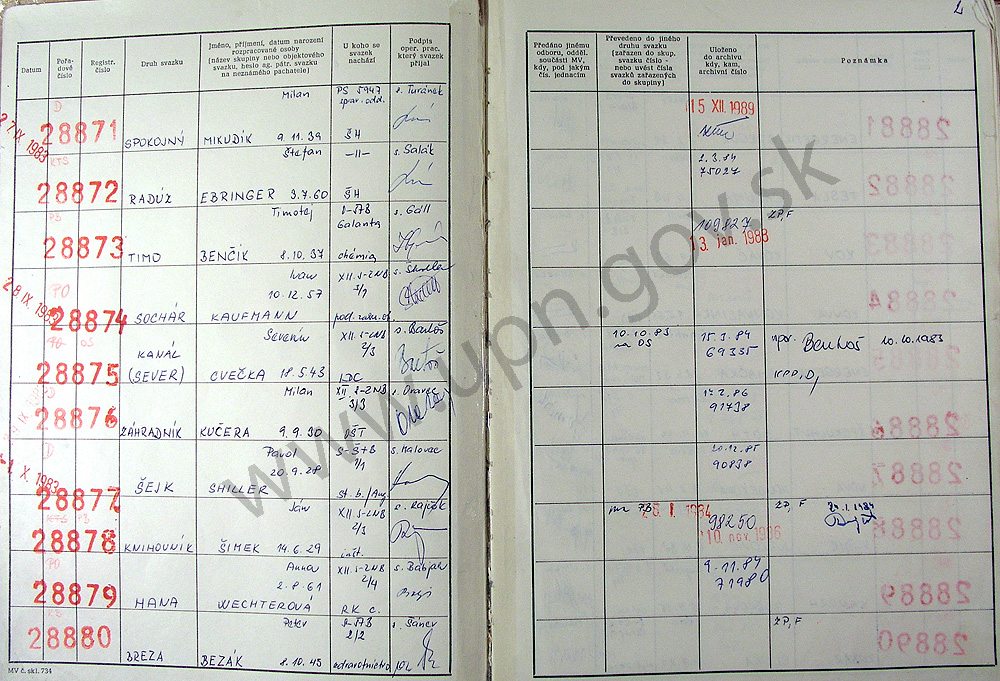 2
Datum
Pořadové číslo
Registr. číslo
Druh svazku
Jméno, příjmení, datum narození
rozpracované osoby
[název skupiny nebo objektového
svazku, heslo ag. pátr. svazku
na neznámého pachatele]
U koho se
svazek
nachází
Podpis
oper. prac.
který svazek
přijal
Předáno jinému
odboru, odděl.
součásti MV,
kdy, pod jakým
čís. jednacím
Převedeno do jiného
druhu svazku
[zařazen do skup.
svazku číslo -
nebo uvést čísla
svazků zařazených
do skupiny]
Uloženo
do archivu
kdy, kam,
archivní číslo
Poznámka
27 IX 1983
D
28871
SPOKOJNÝ
Milan
MIKUDÍK 9.11.39
PS 5947
správ. odd.
ŠH
s. Turánek
15 XII. 1989
KTS
28872
RADÚZ
Štefan
EBRINGER 3.7.60
-11-
ŠH
s. Salák
2.3.84
75027
PS
28873
TIMO
Timotej
BENČÍK 8.10.37
Galanta
chémia
s. Gáll
109827
13 jan. 1988
ZP, F
28 IX 1983
PO
28874
SOCHÁR
Ivan
10.12.57
KAUFMANN
XII. S-ZNB
3/1
OS
28875
KANÁL
(SEVER)
Severín
CVEČKA 18.5.43
XII. S-ZNB
2/3
s. Bartoš
10.10.83
na OS
15.3.84
69335
10.10.1983
KPP, D,
28876
ZÁHRADNÍK
Milan
KUČERA 9.9.30
XII S-ZNB
3/3
s. Oravec
2.86
91738
X. 1983
D
28877
ŠEJK
Pavol
20.9.28
SHILLER
S-ŠTB
1/1
s. Malovec
20.12.85
90838
28878
KNIHOVNÍK
Ján
ŠIMEK 14.6.29
XII S-ZNB
2/3
inšt.
s. Rajčok
26 I. 1984
98250
10 nov. 1986
ZP, F
24.1.1984
PO
28879
HANA
Anna
2.8.61
WECHTEROVÁ
XII. S-ZNB
2/4
RK c.
s. Babjak
9.11.84
71980
28880
BREZA
Peter
BEZÁK 8.10.45
2/2
zdravotníctvo
s. Šánev
ZP, F
28881
28882
28883
28884
28886
28887
28888
28889
28890
MV č. skl. 734
www.upn.gov.sk